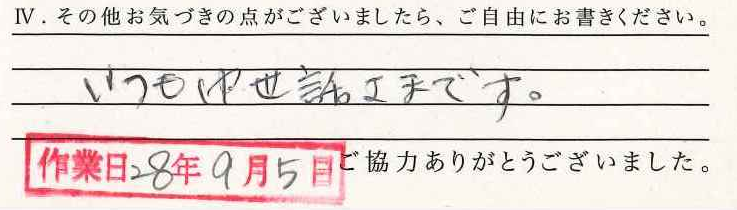 Ⅳ．その他お気づきの点がございましたら、ご自由にお書きください。
いつも 世話 です。
作業日28年9月5日
ご協力ありがとうございました。